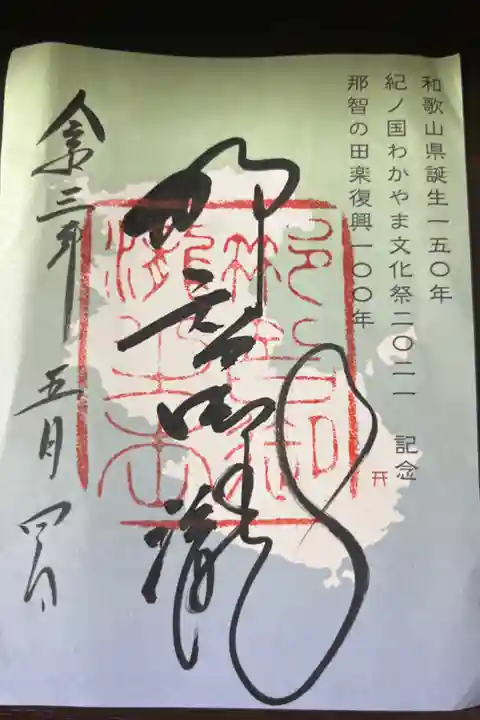 和歌山県誕生一五〇年
紀ノ国わかやま文化祭二〇二一 記念
那智の田楽復興一〇〇年
那智御瀧
令和三年 五月 四日